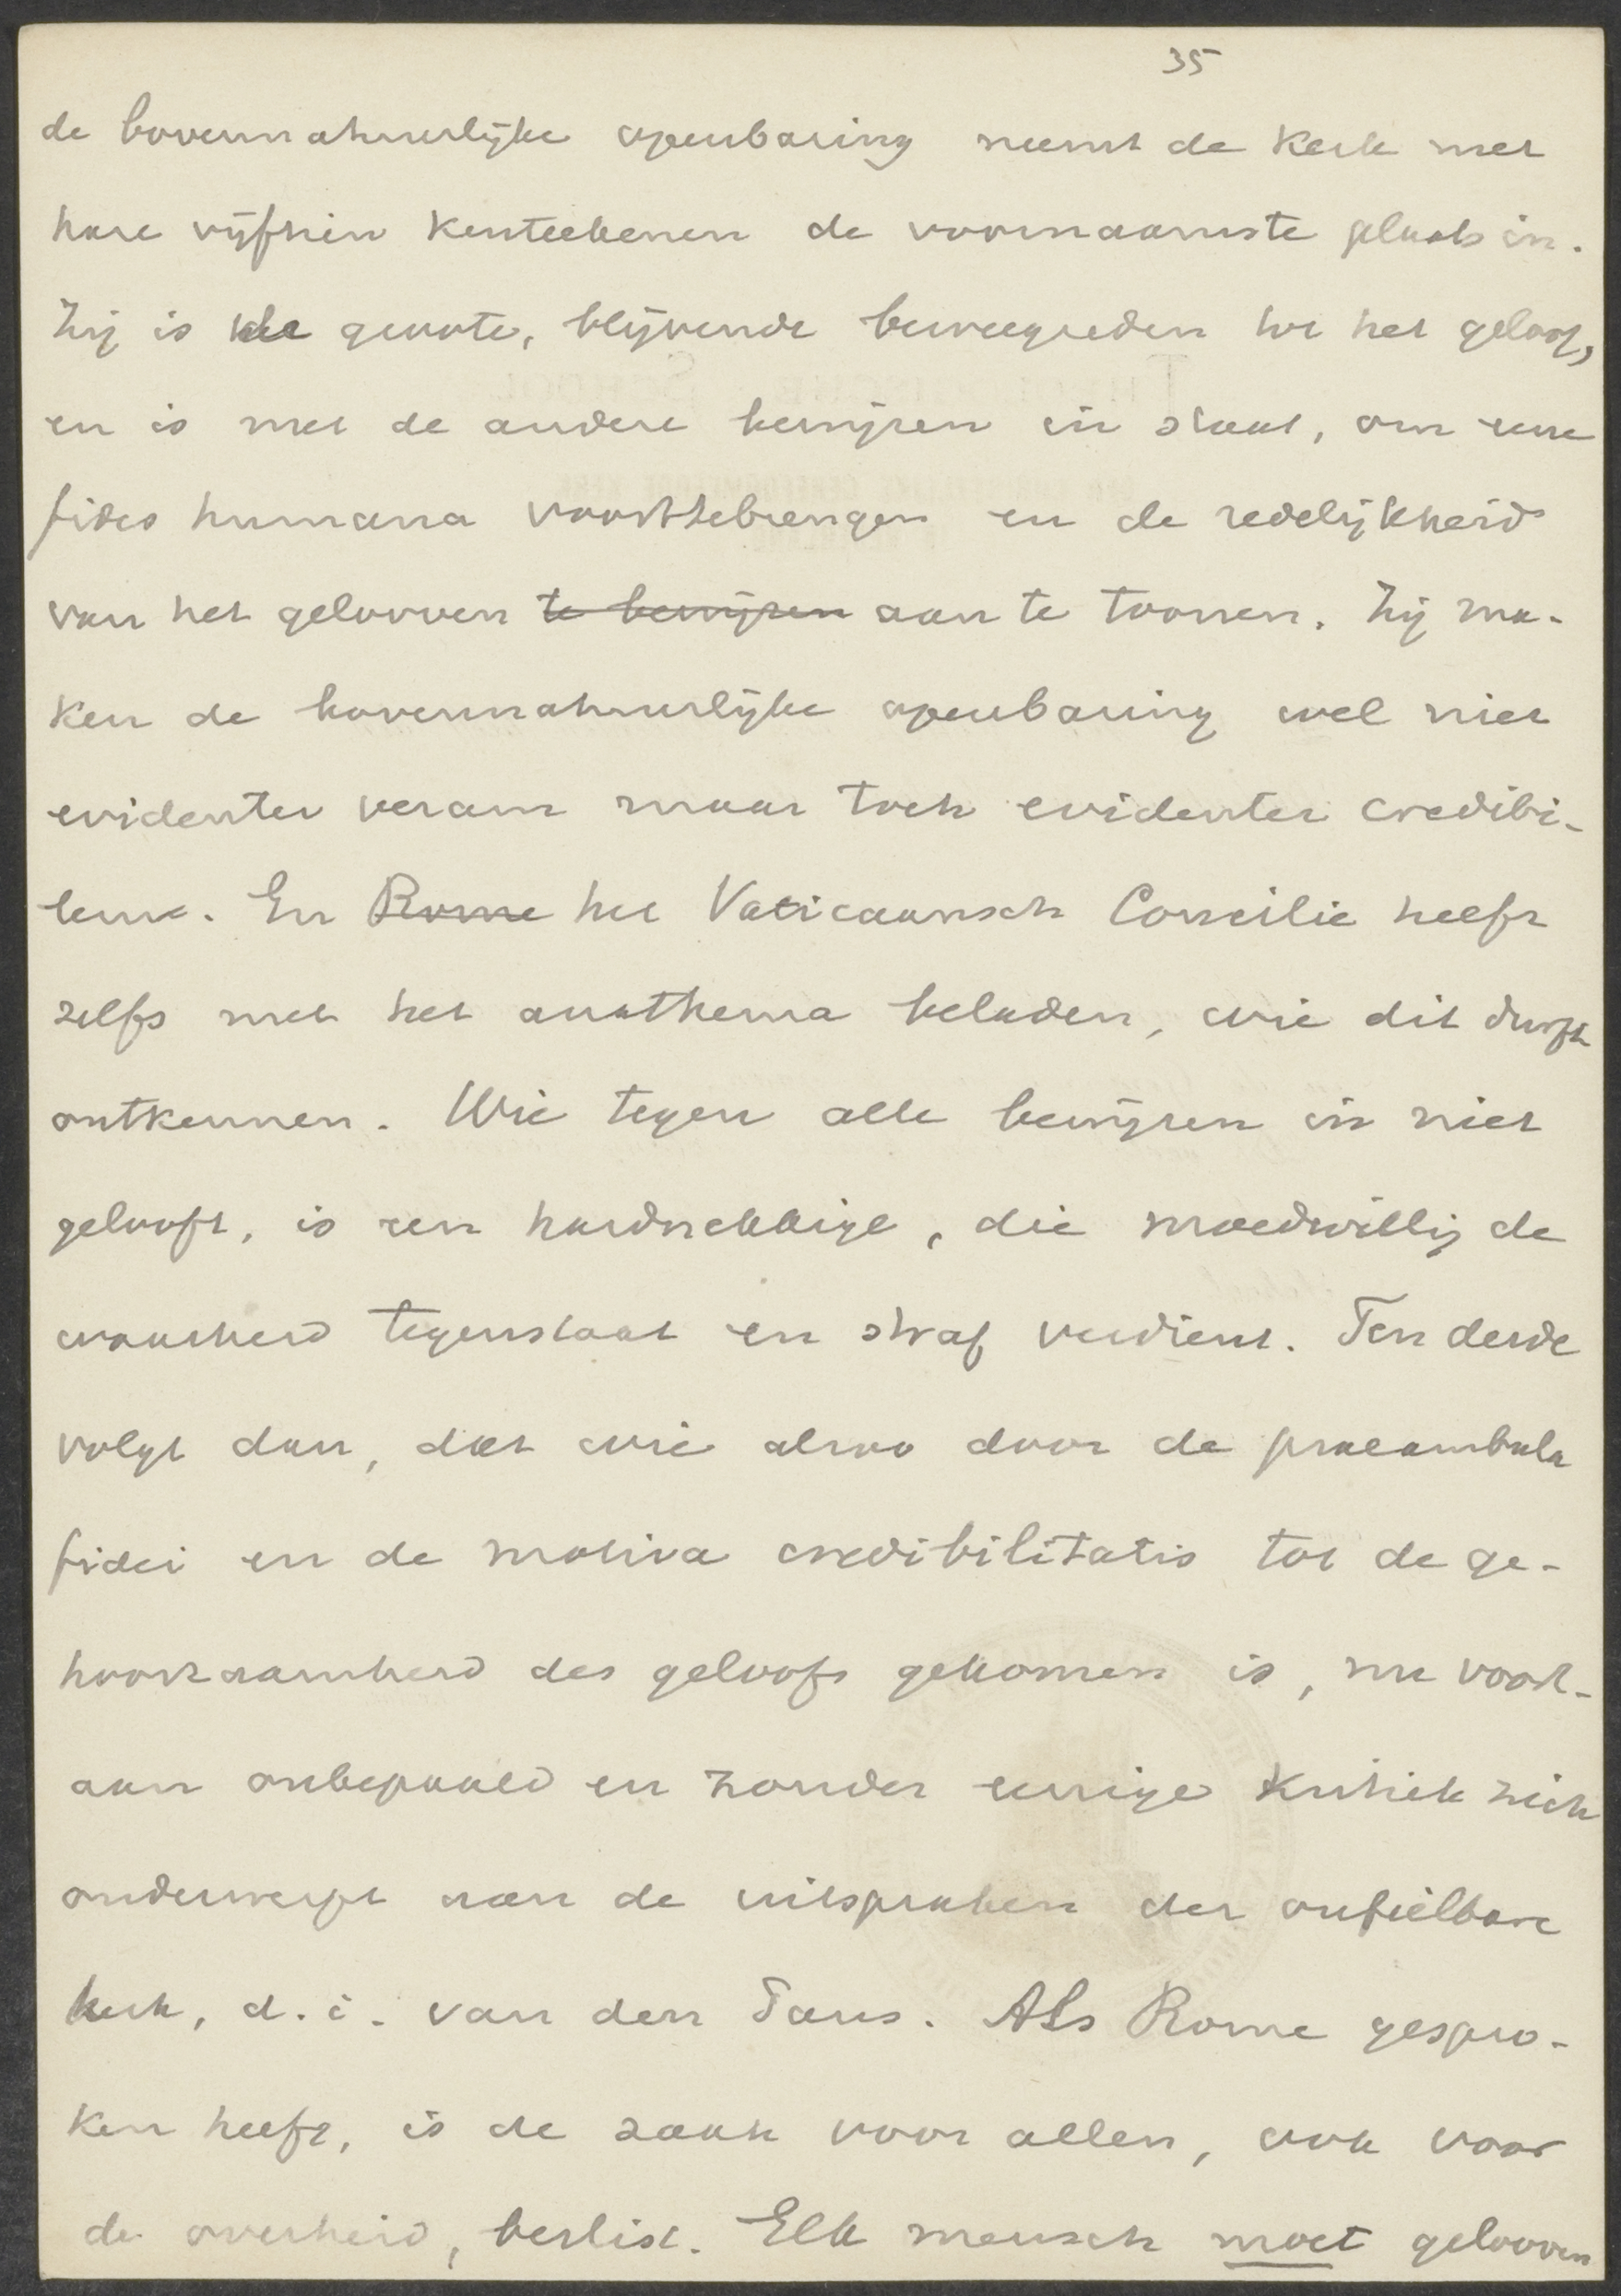 35
de bovennatuurlijke openbaring neemt de kerk met
hare vijftien kenteekenen de voornaamste plaats in.
Zij is de groote, blijvende beweegreden tot het geloof,
en is met de andere bewijzen in staat, om eene
fides humana voorttebrengen en de redelijkheid
van het gelooven te bewijzen aan te toonen. Zij ma-
ken de bovennatuurlijke openbaring wel niet
evidenter veram maar toch evidenter credibi-
lem. En Rome het Vaticaansch Concilie heeft
zelfs met het anathema beladen, wie dit durft
ontkennen. Wie tegen alle bewijzen in niet
gelooft, is een hardnekkige, die moedwillig de
waarheid tegenstaat en straf verdient. Ten derde
volgt dan, dat wie alzoo door de praeambula
fidei en de motiva credibilitatis tot de ge-
hoorzaamheid des geloofs gekomen is, nu voort-
aan onbepaald en zonder eenige kritiek zich
onderwerpt aan de uitspraken der onfeilbare
kerk, d. i. van den Paus. Als Rome gespro-
ken heeft, is de zaak voor allen, ook voor
de overheid, beslist. Elk mensch moet gelooven